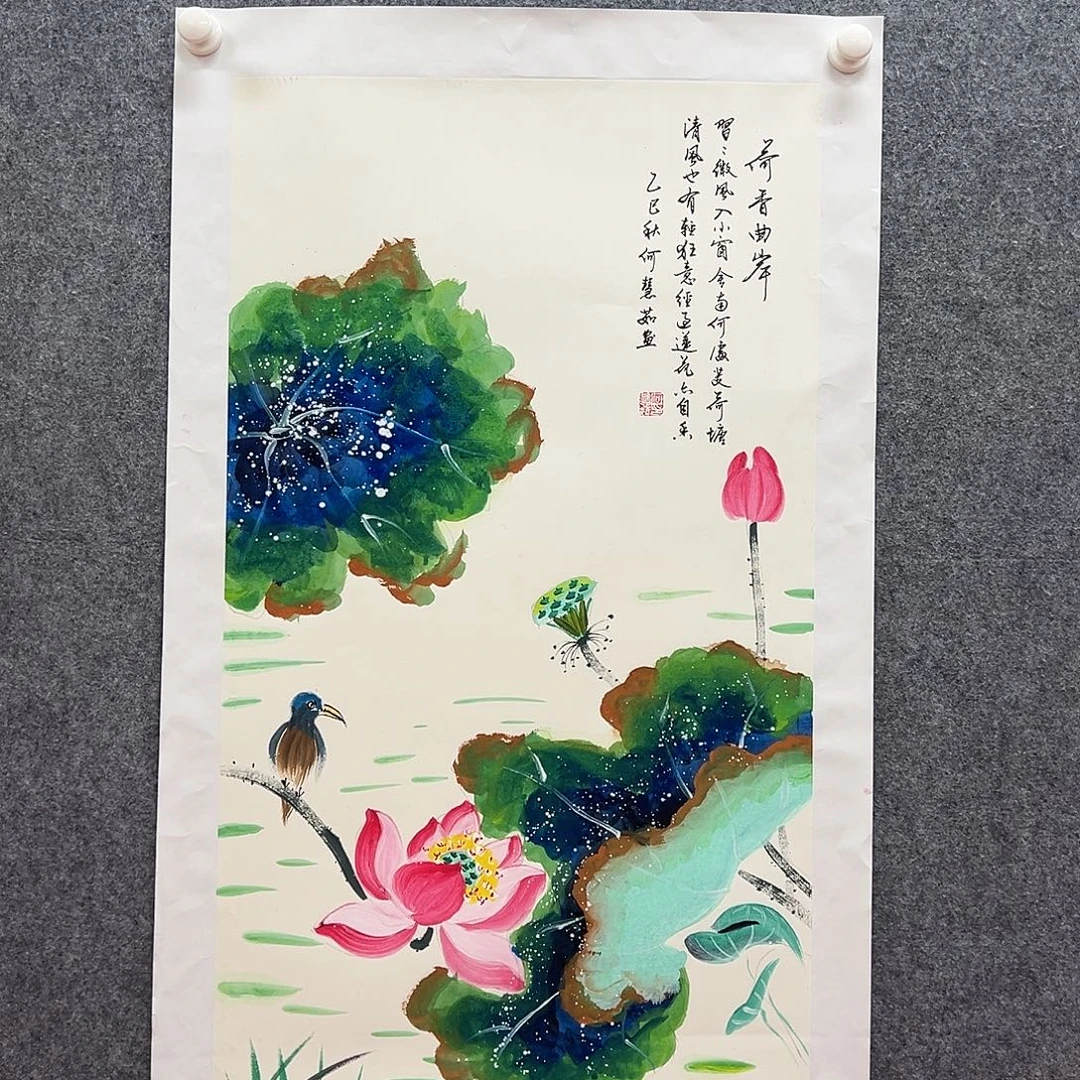 荷香曲岸
習〻微風入小窗舍南何處芰荷塘
清風也有輕狂意經過蓮花亦自香
乙巳秋何慧茹畫